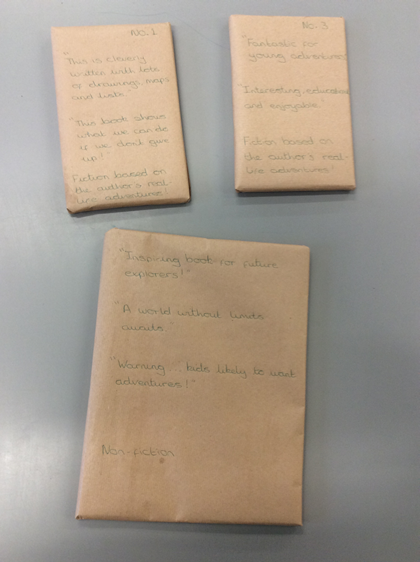 No. 1
"This is clevery
written with lots
of drawings, maps
and lists.
"This book shows
what we can be
if we don't give
up!"
Fiction based on
the author's real-
life adventures!
No. 3
"Fantastic for
young adventurers
"Interesting, educational
and enjoyable!
Fiction based on
the author's real-
life adventures!
"Inspiring book for future
explorers!"
"A world without limits
awaits"
"Warning... kids likely to want
adventures!"
Non-fiction